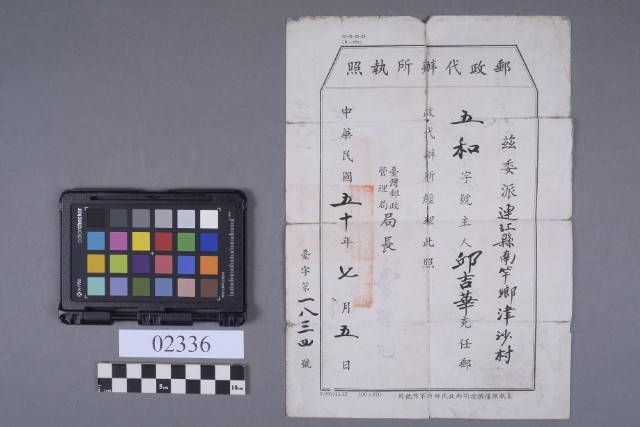 郵政代辦所執照
茲委派連江縣南竿鄉津沙村
五和字號主人邱吉華充任郵
政代辦所經理此照
臺灣郵政
管理局局長
中華民國五十年七月五日
臺字第一八三四號
02336
colorchecker
x-rite
5cm
10cm